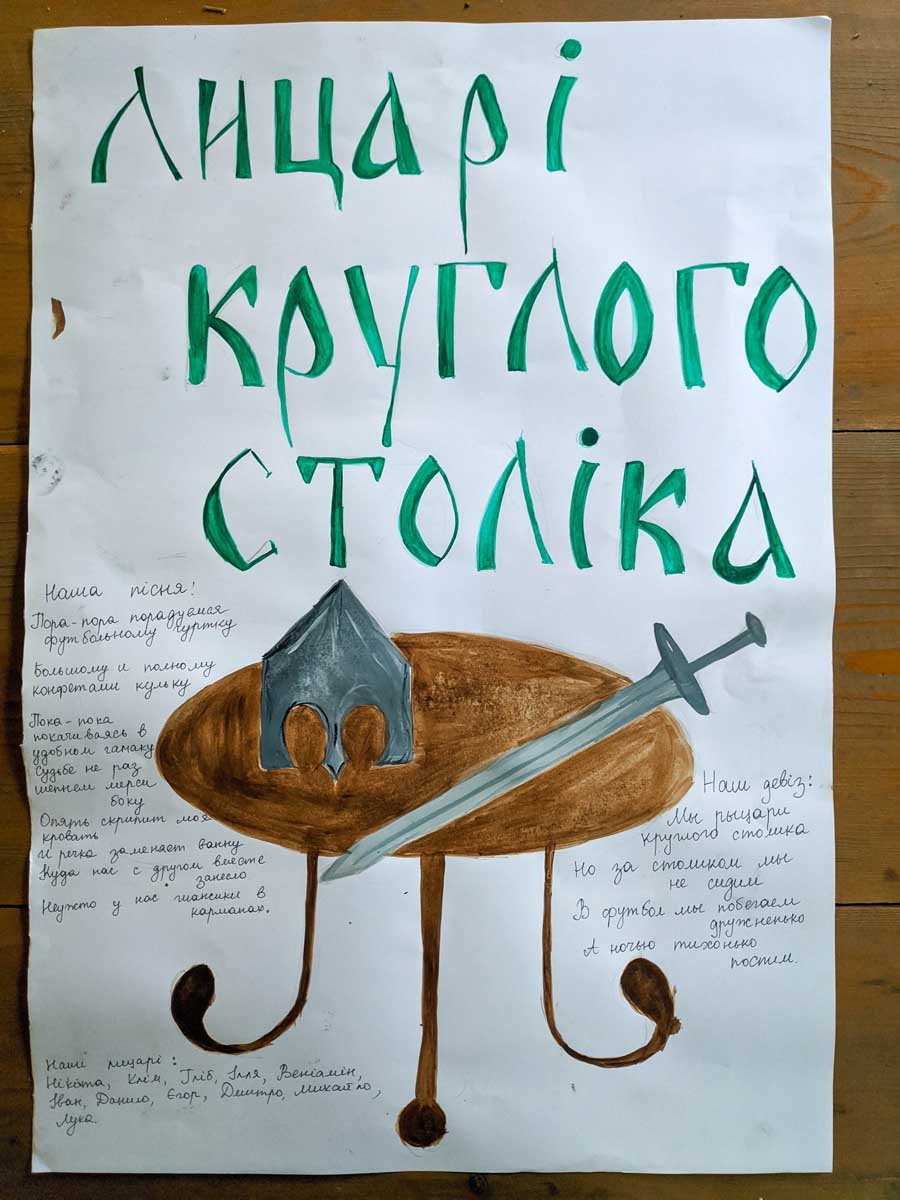 Лицарі
круглого
століка
Наша пісня!
Пора-пора порадуемся
футбольному чуртку
Большому и полному
конфетами кульку
Пока-пока
покачиваясь в
удобном гамаку
Судьбе не раз
шепнем мерси
боку
Опять скрипит моя
кровать
И речка заменяет ванну
Куда нас с другом вместе
занесло
Неужто у нас в
карманах.
Наш девіз:
Мы рыцари
круглого столика
Но за столиком мы
не сидим
В футбол мы побегаем
дружненько
А ночью тихонько
поспим.
Наші лицарі:
Нікіта, Клім, Гліб, Ілля, Веніамін,
Іван, Данило, Єгор, Дмитро, Михайло,
Лука.